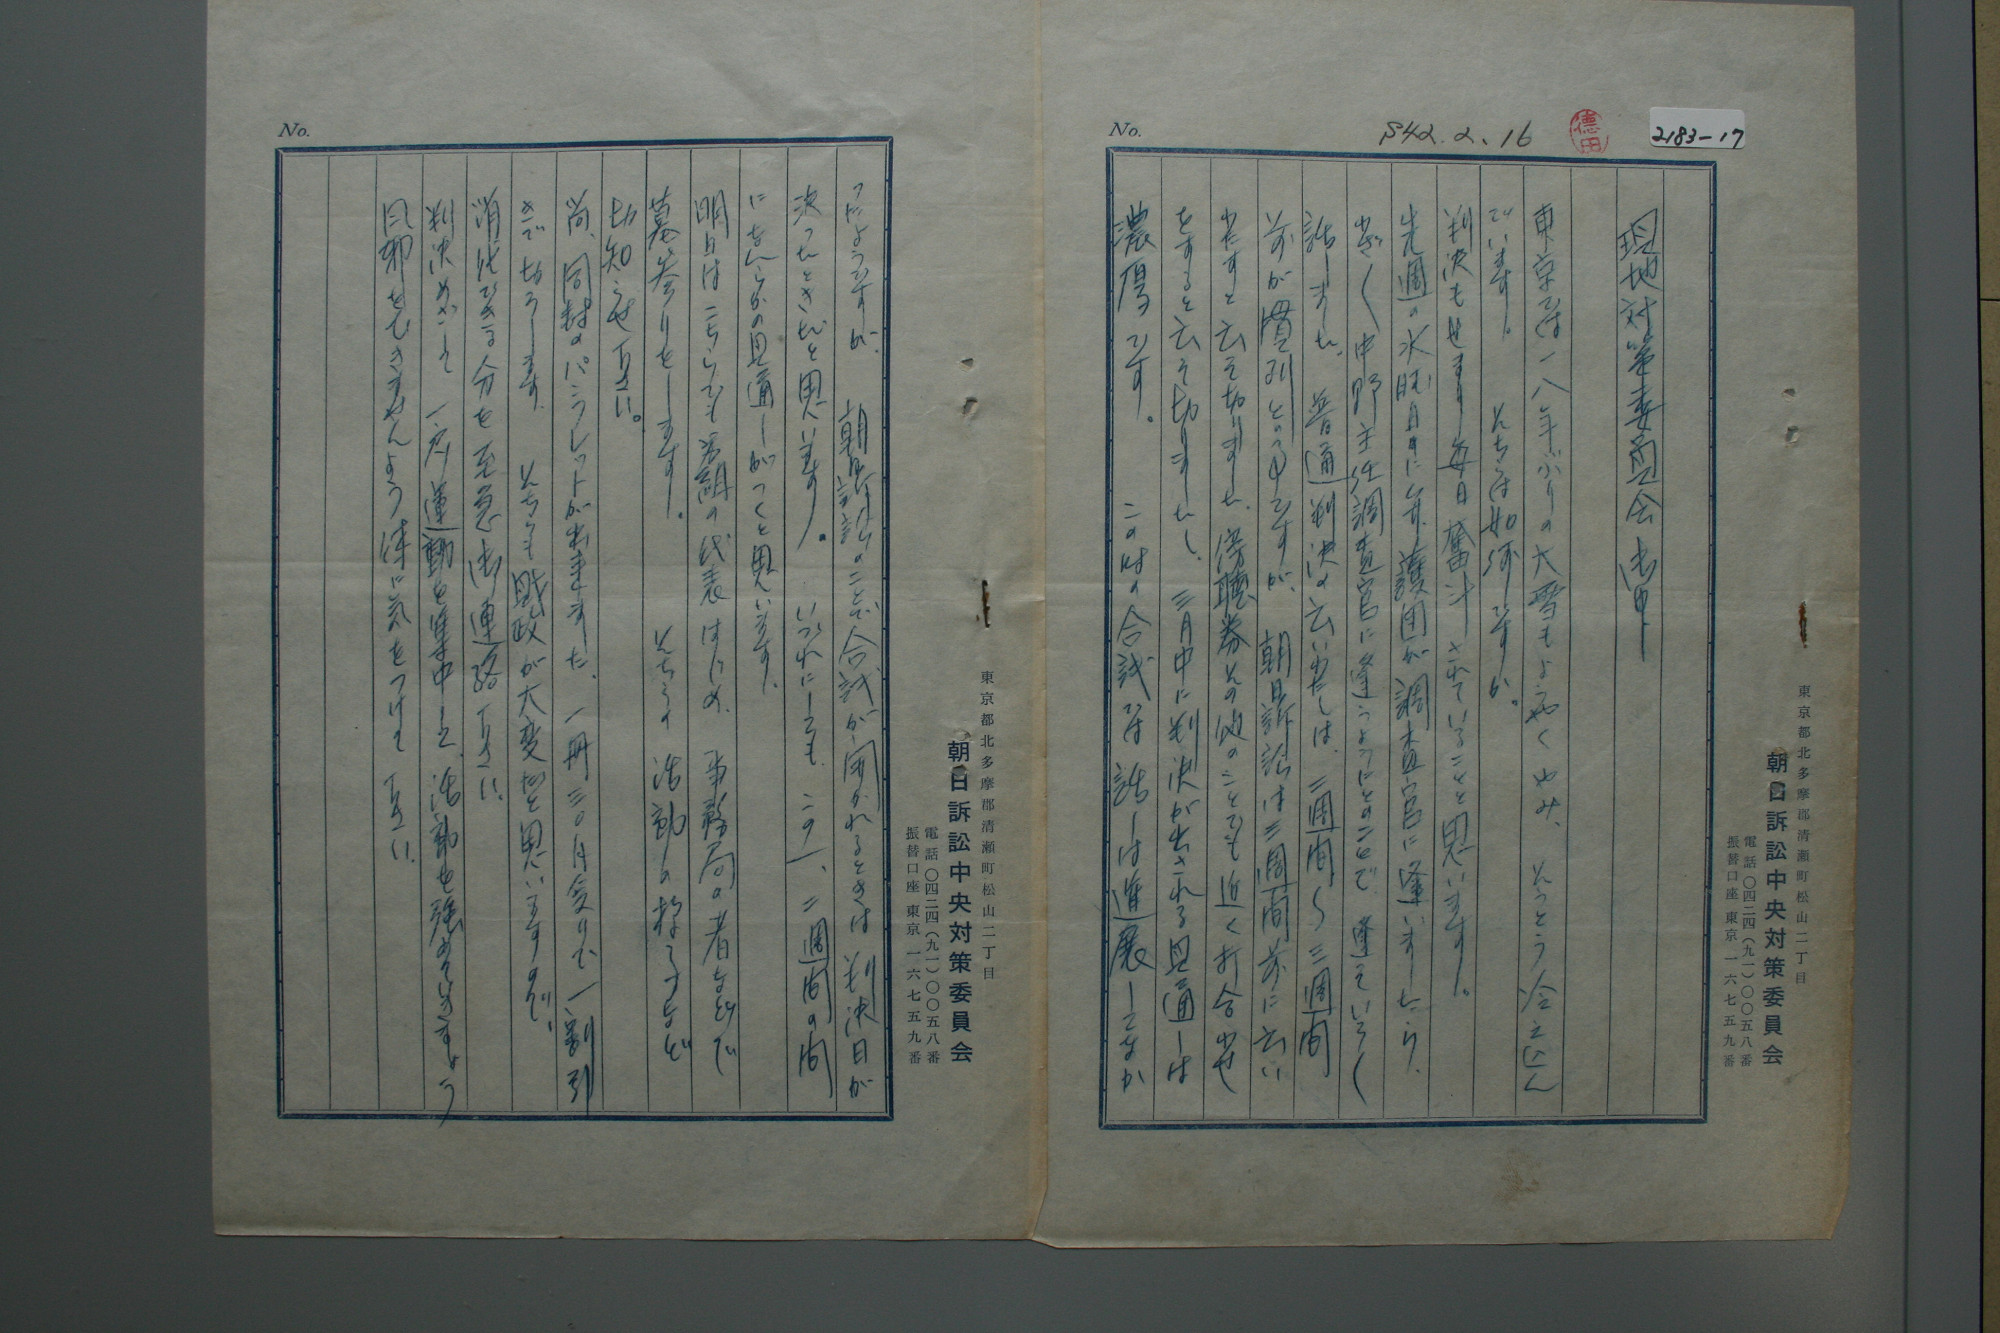 2183-17
徳田
S42.2.16
No.
東京都北多摩郡清瀬町松山二丁目
朝日訴訟中央対策委員会
電話〇四二四(九一)〇〇五八番
振替口座 東京 一六七五九番
現地対策委員会御中
東京では一八年ぶりの大雪もようやくやみ、めっとう冷え込ん
でいます。そちらは如何ですか。
判決もせまり毎日奮斗されていることと思います。
先週の水曜日に弁護団が調査官に逢いましたら、
めざ〱中野主任調査官に逢うようにとのことで、逢っていろ〱
話しました。普通判決の云いわたしは、二週間〜三週間
前が慣例との由ですが、朝日訴訟は三週間前に云い
わたすと云い切りました。傍聴券その他のことでも近く打合わせ
をすると云い切りましたし、三月中に判決が出される見通しは
濃厚です。この時の合議では話しは進展してなか
No.
東京都北多摩郡清瀬町松山二丁目
朝日訴訟中央対策委員会
電話〇四二四(九一)〇〇五八番
振替口座 東京 一六七五九番
ったようですが、朝日訴訟のことで合議が開かれるときは判決日が
決ったときだと思います。いづれにしても、この一、二週間の間
になんらかの見通しがつくと思います。
明日はこちらでも各組の代表はじめ、事務局の者などで
墓参りをします。そちらの活動の様子など
お知らせ下さい。
尚、同封のパンフレットが出来ました。一冊三〇円受りで一割引
きでおろします。そちらも財政が大変だと思いますので、
消化できる分を至急御連絡下さい。
判決めざして一层運動を集中して、活動を強めていきましょう
風邪をひきませんよう体に気をつけて下さい。